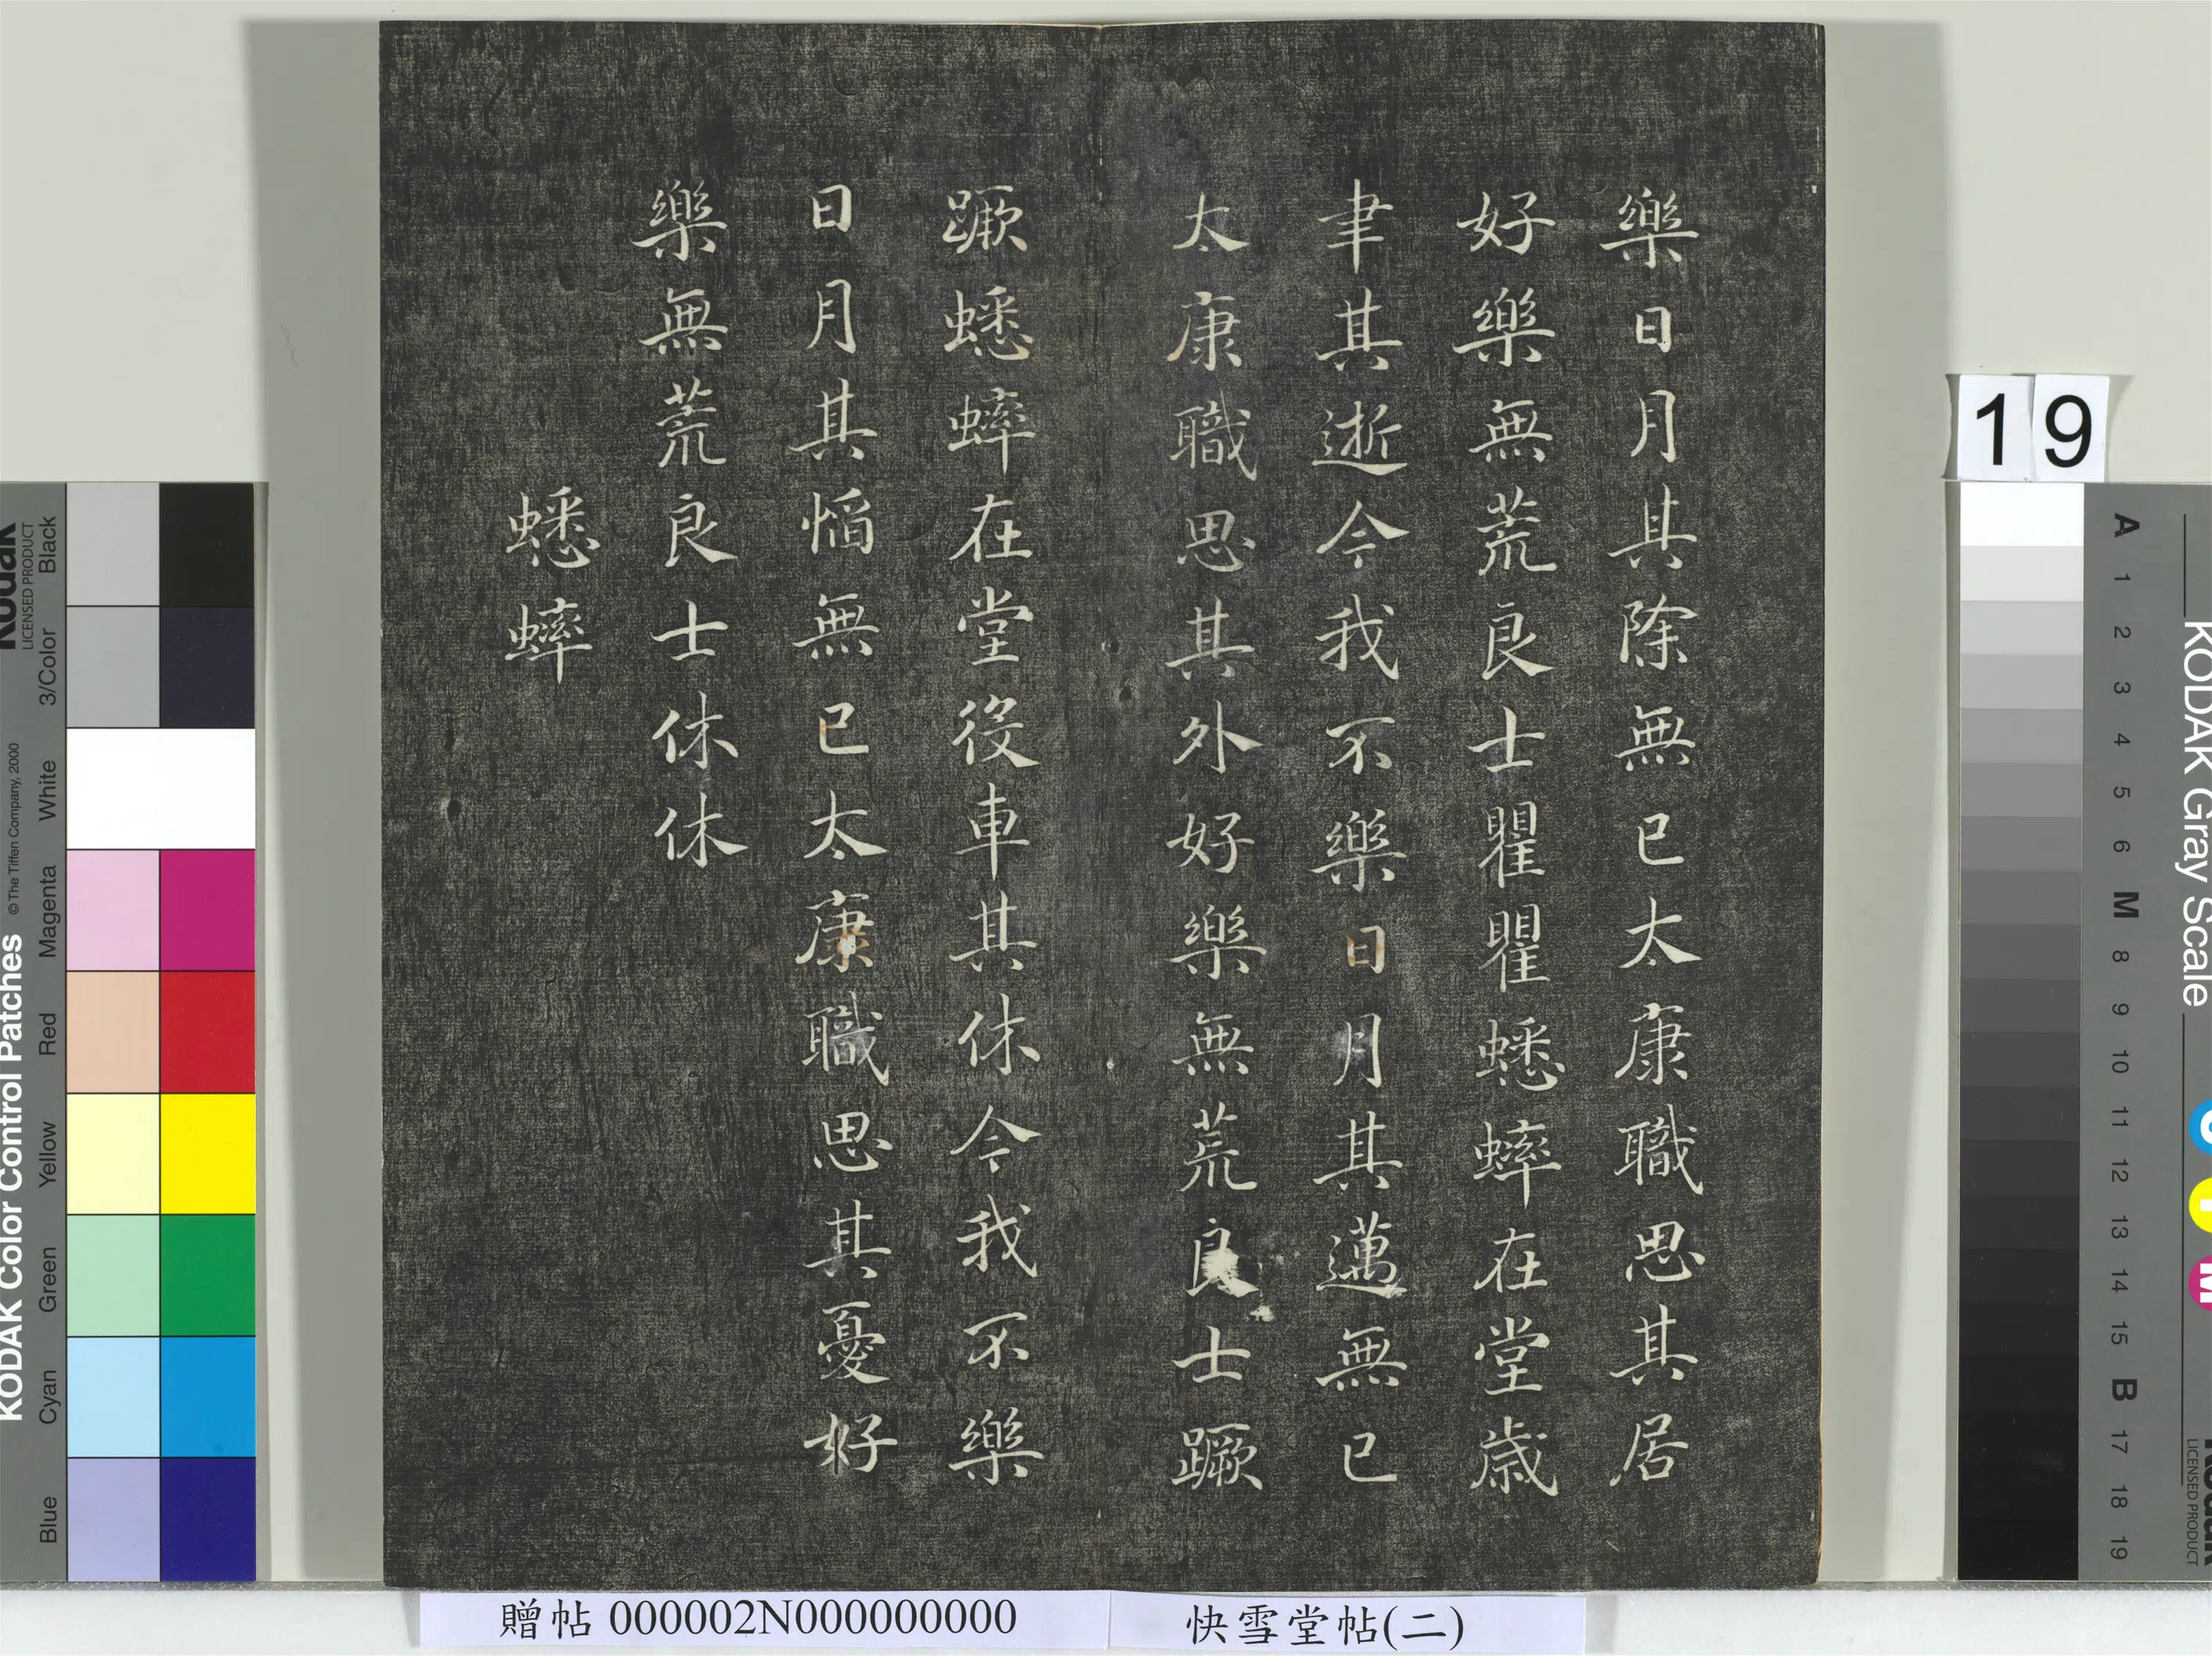 樂日月其除無已太康職思其居
好樂無荒良士瞿瞿蟋蟀在堂歳
聿其逝今我不樂日月其邁無已
太康職思其外好樂無荒良士蹶
蹶蟋蟀在堂役車其休今我不樂
日月其慆無已太康職思其憂好
樂無荒良士休休
蟋蟀
19
贈帖 000002N000000000
快雪堂帖(二)
KODAK Color Control Patches
© The Tiffen Company, 2000
Kodak
LICENSED PRODUCT
Blue Cyan Green Yellow Red Magenta White 3/Color Black
KODAK Gray Scale
A 1 2 3 4 5 6 M 8 9 10 11 12 13 14 15 B 17 18 19
Kodak
LICENSED PRODUCT
C
Y
M